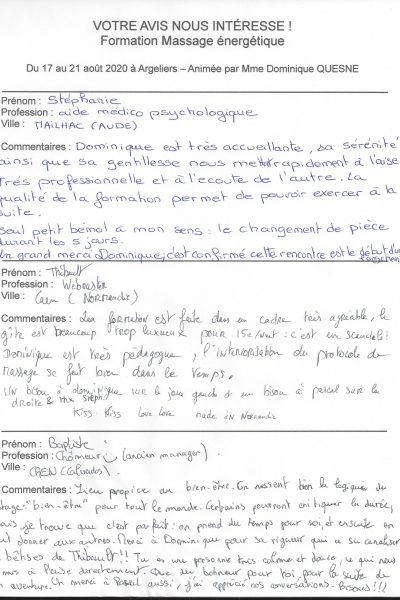 VOTRE AVIS NOUS INTÉRESSE !
Formation Massage énergétique
Du 17 au 21 août 2020 à Argeliers – Animée par Mme Dominique QUESNE
Prénom : Stéphanie
Profession : aide médico psychologique
Ville : MAILHAC (AUDE)
Commentaires : Dominique est très accueillante, sa sérénité
ainsi que sa gentillesse nous mettent rapidement à l'aise
Très professionnelle et à l'écoute de l'autre. La
qualité de la formation permet de pouvoir exercer à la
suite.
Seul petit bémol à mon sens : le changement de pièce
durant les 5 jours.
Un grand merci à Dominique, c'est confirmé cette rencontre est le début d'un
Prénom : Thibault
Profession : Webmaster
Ville : Caen (Normandie)
Commentaires : La formation est faite dans un cadre très agréable, le
gîte est beaucoup trop luxueux pour 15e/nuit : c'est un scandale !
Dominique est très pédagogue, l'interiorisation du protocole de
massage se fait bien dans le temps.
Un bisou à dominique sur la joue gauche et un bisou à pascal sur la
droite & Mix Steph.
Kiss Kiss love love made in Normandie
Prénom : Baptiste
Profession : Chômeur (ancien manager).
Ville : CAEN (Calvados).
Commentaires : Lieu propice au bien-être. On ressent bien la logique du
stage "bien-être" pour tout le monde. Certains pourront critiquer la durée,
mais je trouve que c'est parfait : on prend du temps pour soi, et ensuite on
peut donner aux autres. Merci à Dominique pour sa rigueur qui a su canaliser
les bêtises de Thibault !! Tu es une personne très calme et douce, ce qui nous
a mis à l'aise directement. Que du bonheur pour toi, pour la suite de
ton aventure. Un merci à Pascal aussi, j'ai apprécié nos conversations. Bisous !!!